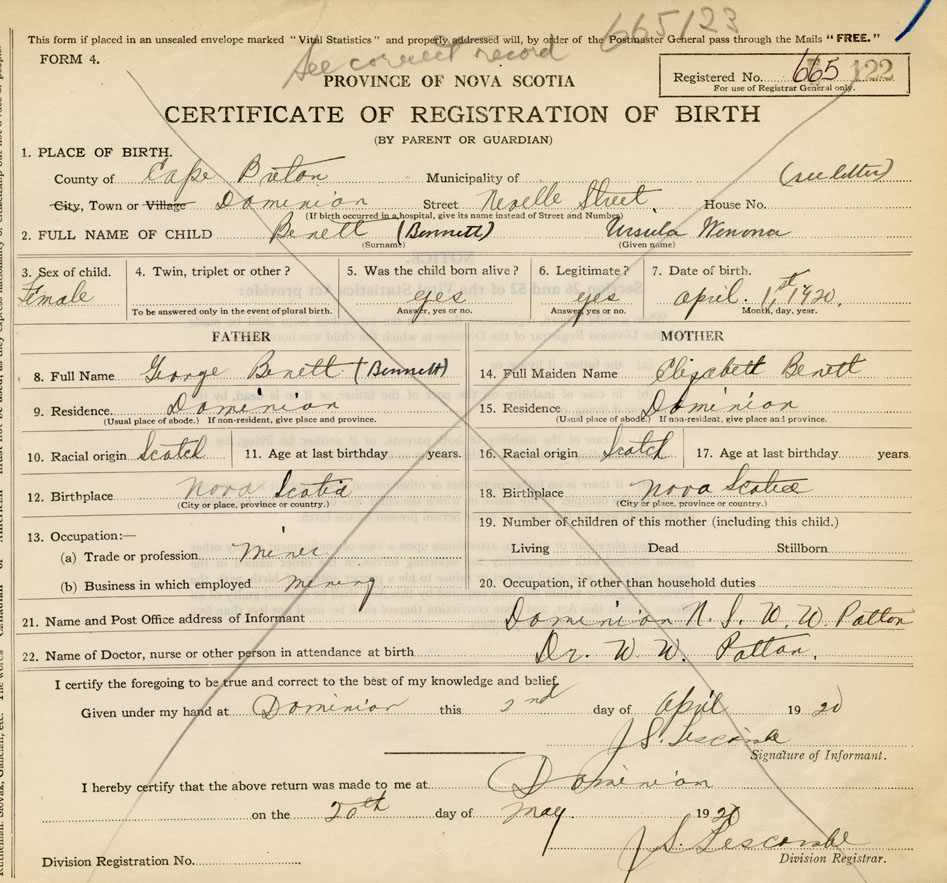 665/23
This form if placed in an unsealed envelope marked "Vital Statistics" and properly addressed will, by order of the Postmaster General pass through the Mails "FREE."
See correct record
FORM 4.
PROVINCE OF NOVA SCOTIA
Registered No. 665 122
For use of Registrar General only.
CERTIFICATE OF REGISTRATION OF BIRTH
(BY PARENT OR GUARDIAN)
1. PLACE OF BIRTH.
County of Cape Breton Municipality of (see letter)
City, Town or Village Dominion Street Nevelle Street House No.
(If birth occurred in a hospital, give its name instead of Street and Number)
2. FULL NAME OF CHILD Benett (Bennett) Ursula Wenona
(Surname) (Given name)
3. Sex of child. 4. Twin, triplet or other? 5. Was the child born alive? 6. Legitimate? 7. Date of birth.
Female yes yes April 1st, 1920.
To be answered only in the event of plural birth. Answer, yes or no. Answer, yes or no. Month, day, year.
FATHER MOTHER
8. Full Name George Benett (Bennett) 14. Full Maiden Name Elizabett Benett
9. Residence Dominion 15. Residence Dominion
(Usual place of abode.) If non-resident, give place and province. (Usual place of abode.) If non-resident, give place and province.
10. Racial origin Scotch 11. Age at last birthday years. 16. Racial origin Scotch 17. Age at last birthday years.
12. Birthplace Nova Scotia 18. Birthplace Nova Scotia
(City or place, province or country.) (City or place, province or country.)
13. Occupation:— 19. Number of children of this mother (including this child.)
(a) Trade or profession Miner Living Dead Stillborn
(b) Business in which employed Mining 20. Occupation, if other than household duties
21. Name and Post Office address of Informant Dominion N. S. W. W. Patton
22. Name of Doctor, nurse or other person in attendance at birth Dr. W. W. Patton.
I certify the foregoing to be true and correct to the best of my knowledge and belief.
Given under my hand at Dominion this 2nd day of April 1920
J. S. Lescombe
Signature of Informant.
I hereby certify that the above return was made to me at Dominion
on the 20th day of May 1920
J. S. Lescombe
Division Registration No. Division Registrar.